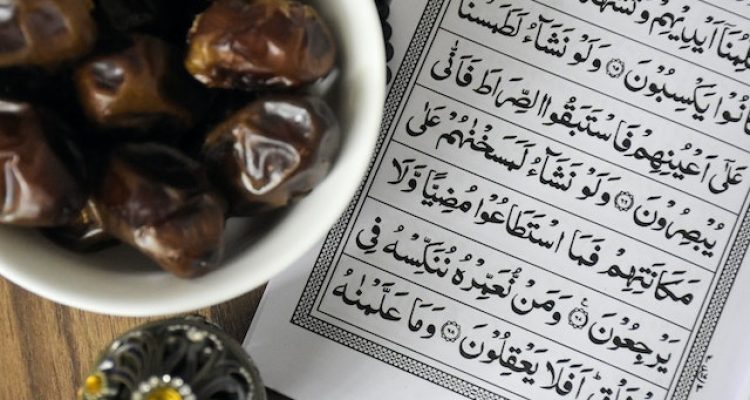 تُكَلِّمُنَاۤ اَيْدِيْهِمْ وَتَشْهَدُ
كَانُوْا يَكْسِبُوْنَ ۝٦٥ وَلَوْ نَشَآءُ لَطَمَسْنَا
عَلٰٓى اَعْيُنِهِمْ فَاسْتَبَقُوا الصِّرَاطَ فَاَنّٰى
يُبْصِرُوْنَ ۝٦٦ وَلَوْ نَشَآءُ لَمَسَخْنٰهُمْ عَلٰى
مَكَانَتِهِمْ فَمَا اسْتَطَاعُوْا مُضِيًّا وَّلَا
يَرْجِعُوْنَ ۝٦٧ وَمَنْ نُّعَمِّرْهُ نُنَكِّسْهُ فِى
الْخَلْقِ ؕ اَفَلَا يَعْقِلُوْنَ ۝٦٨ وَمَا عَلَّمْنٰهُ